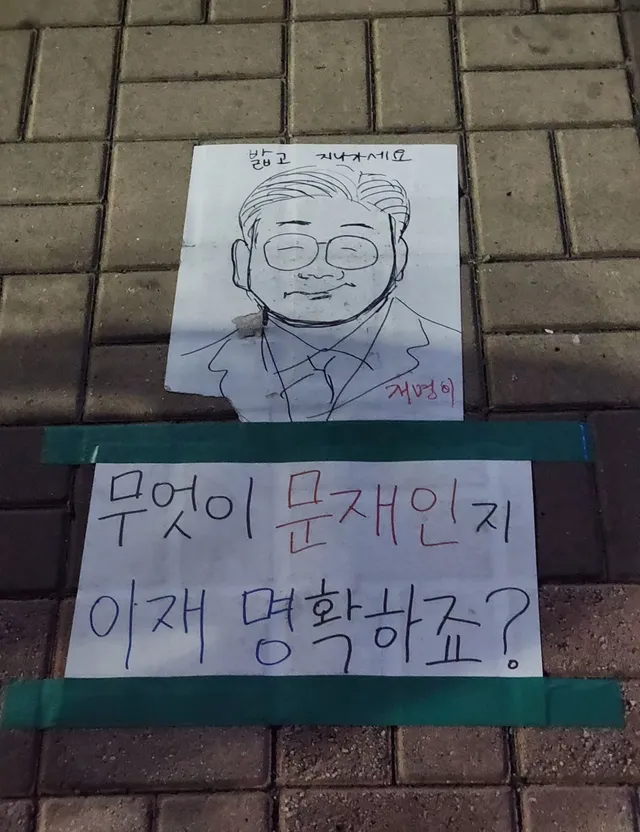 밟고 지나가세요
재명이
무엇이 문재인지
이재 명확하죠?